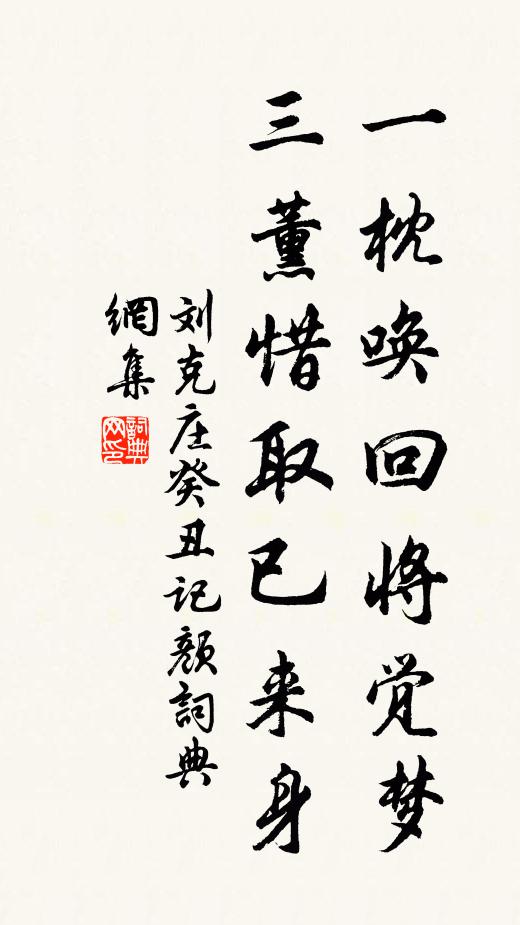 一枕唤回将觉梦
三薰惜取已来身
刘克庄癸丑记颜詞典
網集
詞典網印